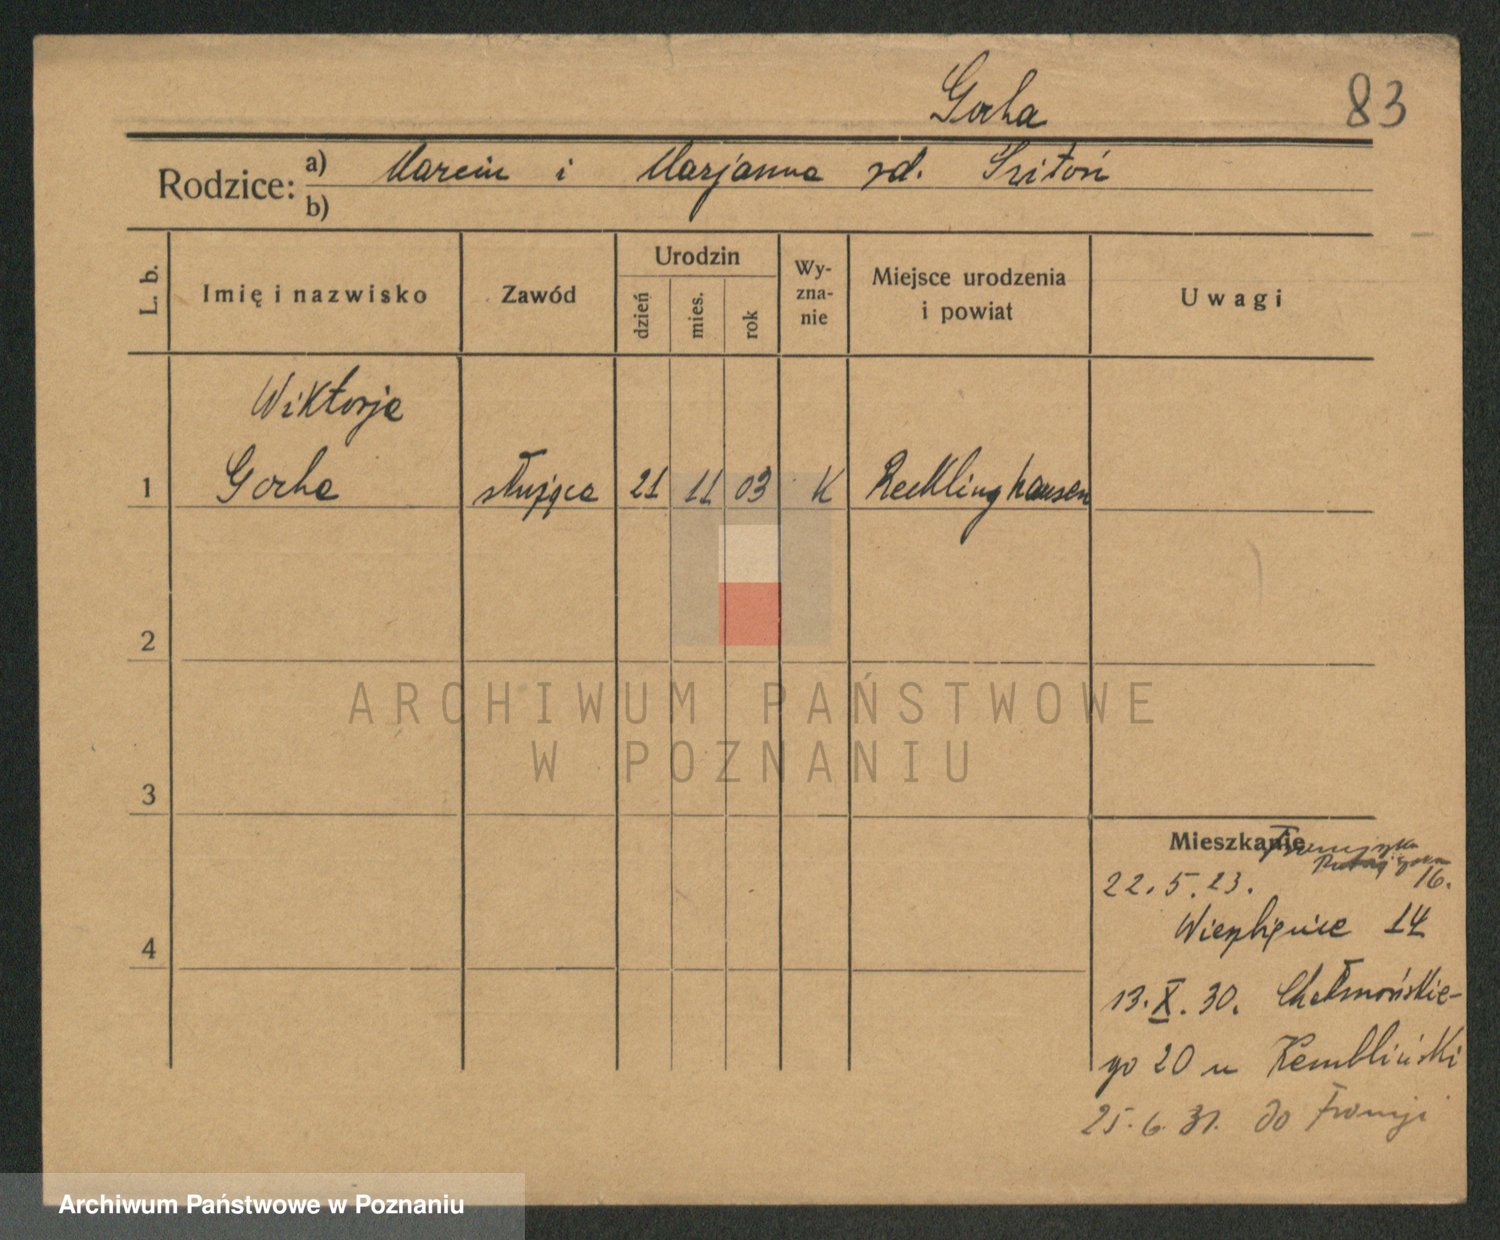 Gorha
83
Rodzice: a) Marcin i Marjanna zd. Szitoń
b)
L. b.
Imię i nazwisko
Zawód
Urodzin
dzień
mies.
rok
Wy-
zna-
nie
Miejsce urodzenia
i powiat
Uwagi
Wiktorja
1 Gorha służąca 21 11 03 K Recklinghausen
2
3
4
ARCHIWUM PAŃSTWOWE
W POZNANIU
Mieszkanie
22.5.23. 16.
14
13.X.30. Chełmońskie-
go 20 u Kembliński
25.6.31. do Francji
Archiwum Państwowe w Poznaniu